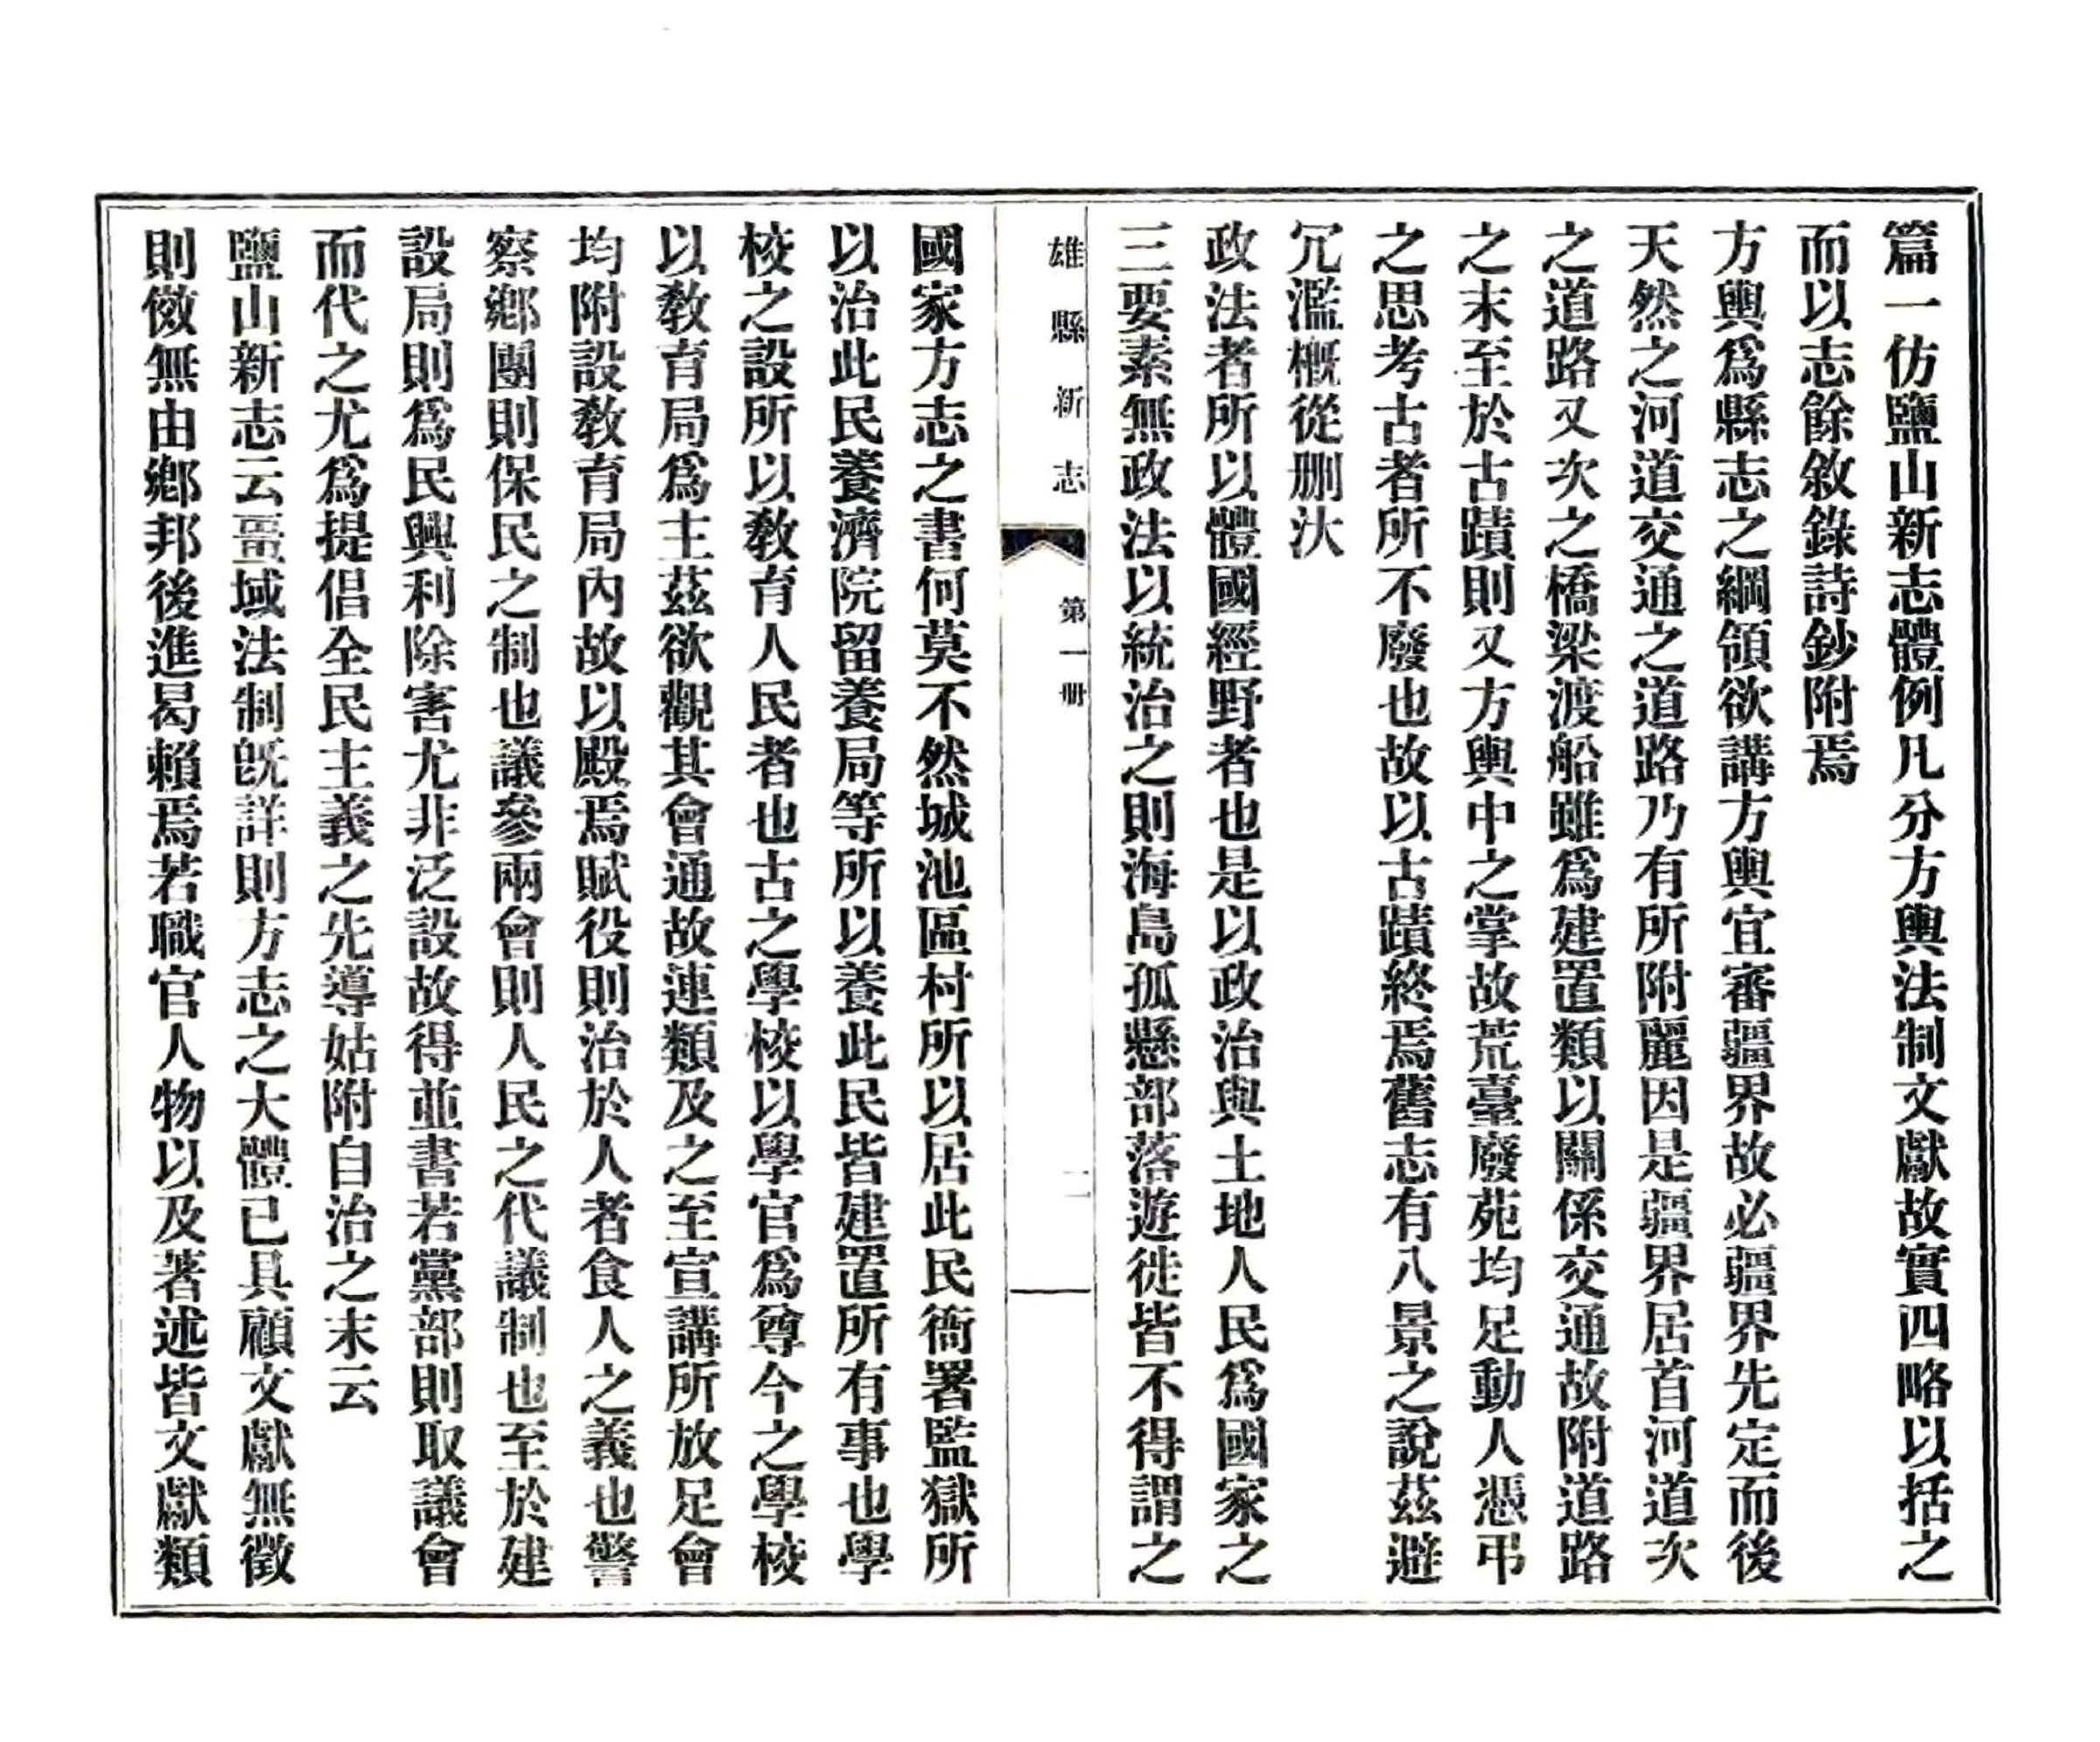 篇一仿鹽山新志體例凡分方輿法制文獻故實四略以括之
而以志餘敘錄詩鈔附焉
方輿爲縣志之綱領欲講方輿宜審疆界故必疆界先定而後
天然之河道交通之道路乃有所附麗因是疆界居首河道次
之道路又次之橋梁渡船雖爲建置類以關係交通故附道路
之末至於古蹟則又方輿中之掌故荒臺廢苑均足動人憑弔
之思考古者所不廢也故以古蹟終焉舊志有八景之說茲避
冗濫槪從删汰
政法者所以體國經野者也是以政治與土地人民爲國家之
三要素無政法以統治之則海島孤懸部落遊徙皆不得謂之
雄縣新志
第一册
二
國家方志之書何莫不然城池區村所以居此民衙署監獄所
以治此民養濟院留養局等所以養此民皆建置所有事也學
校之設所以敎育人民者也古之學校以學官爲尊今之學校
以敎育局爲主茲欲觀其會通故連類及之至宣講所放足會
均附設敎育局內故以殿焉賦役則治於人者食人之義也警
察鄉團則保民之制也議參兩會則人民之代議制也至於建
設局則爲民興利除害尤非泛設故得並書若黨部則取議會
而代之尤爲提倡全民主義之先導姑附自治之末云
鹽山新志云畺域法制旣詳則方志之大體已具顧文獻無徵
則儆無由鄉邦後進曷賴焉若職官人物以及著述皆文獻類